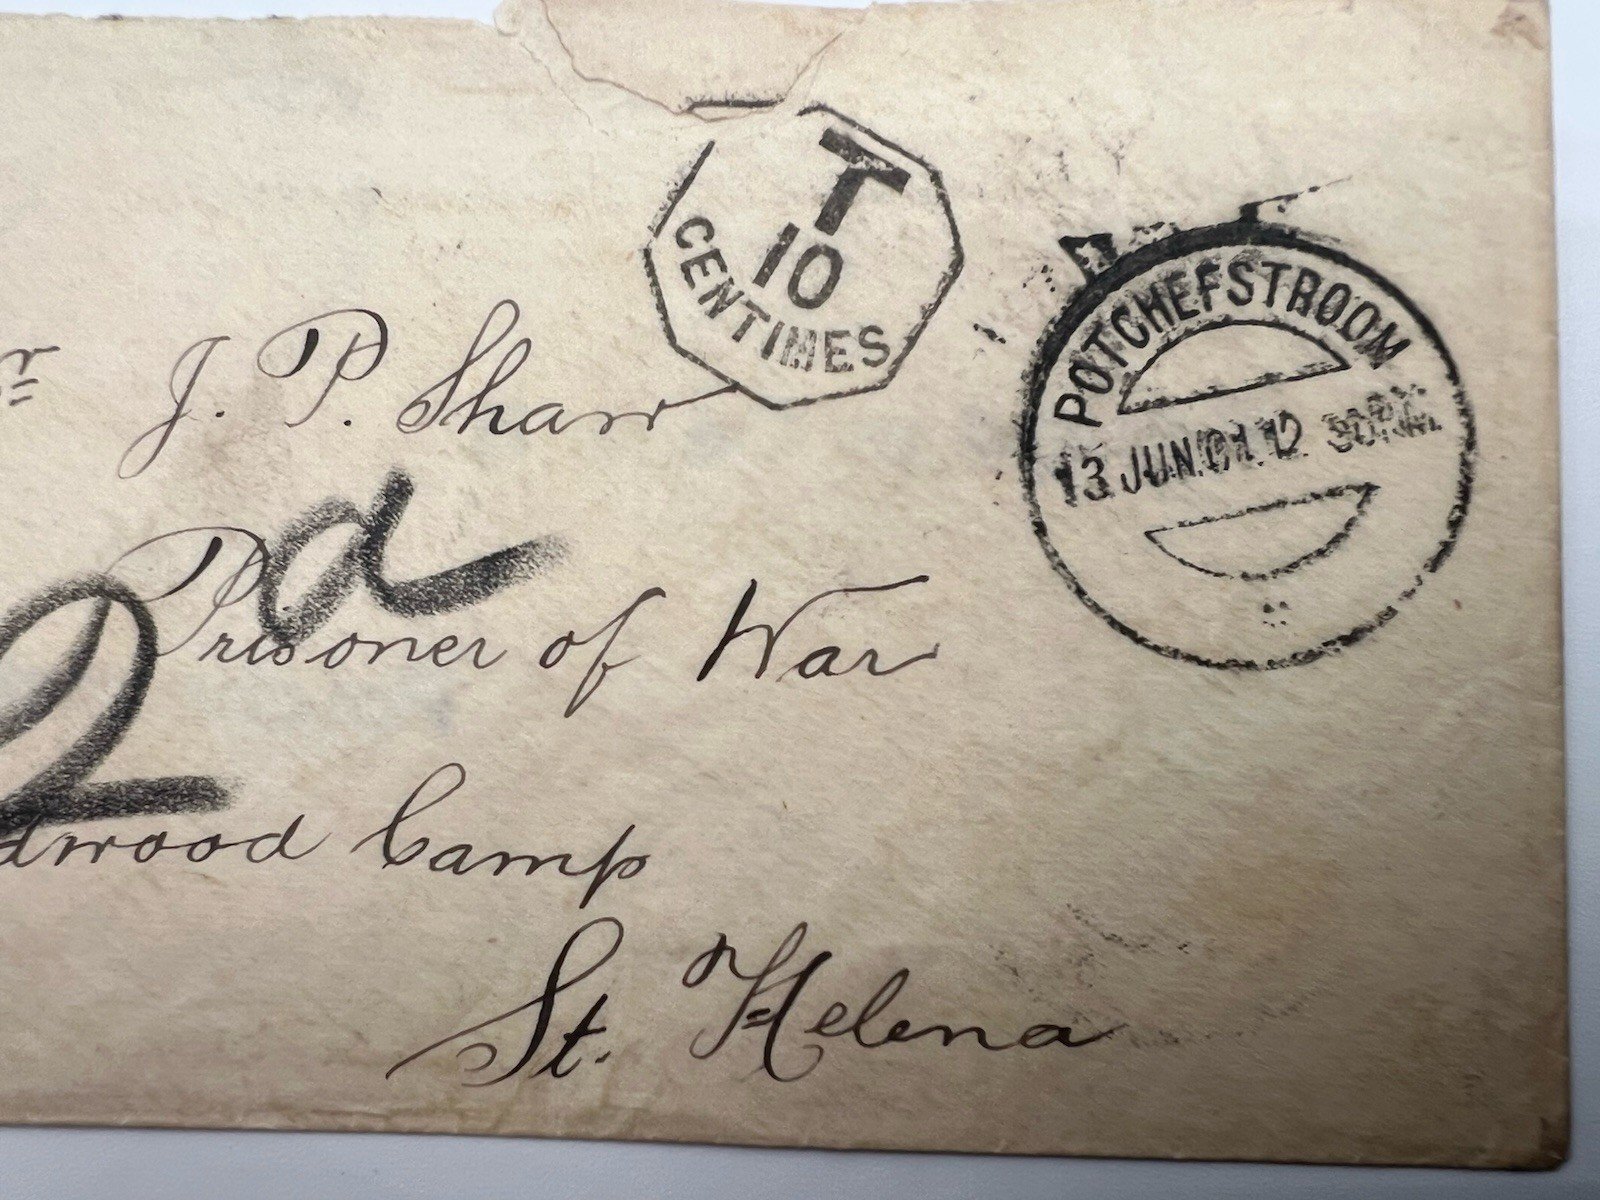 T
10
CENTIMES
POTCHEFSTROOM
13 JUN.01.12
r J. P. Shaw
2d
Prisoner of War
dwood Camp
St. Helena